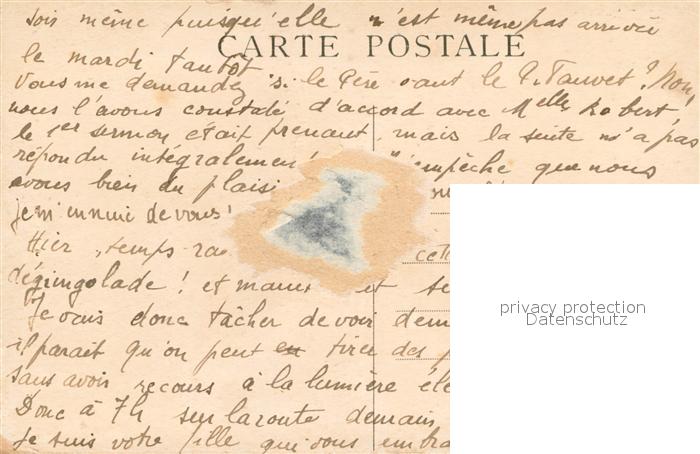 sois même puisqu'elle n'est même pas arrivée
CARTE POSTALE
le mardi tantôt
Vous me demandez si le Père vaut le P. Fauvet? Non,
nous l'avons constaté d'accord avec Melle Robert,
le 1er sermon était prenant, mais la suite n'a pas
répondu intégralemen empêche que nous
avons bien du plaisi
je m'ennuie de vous!
Hier, temps ra cet
dégringolade! et mam et
Je vais donc tâcher de voir dem
il parait qu'on peut en tirer des
sans avoir recours à la lumière éle
Donc à 7h sur la route demain
Je suis votre fille qui vous embra
privacy protection
Datenschutz